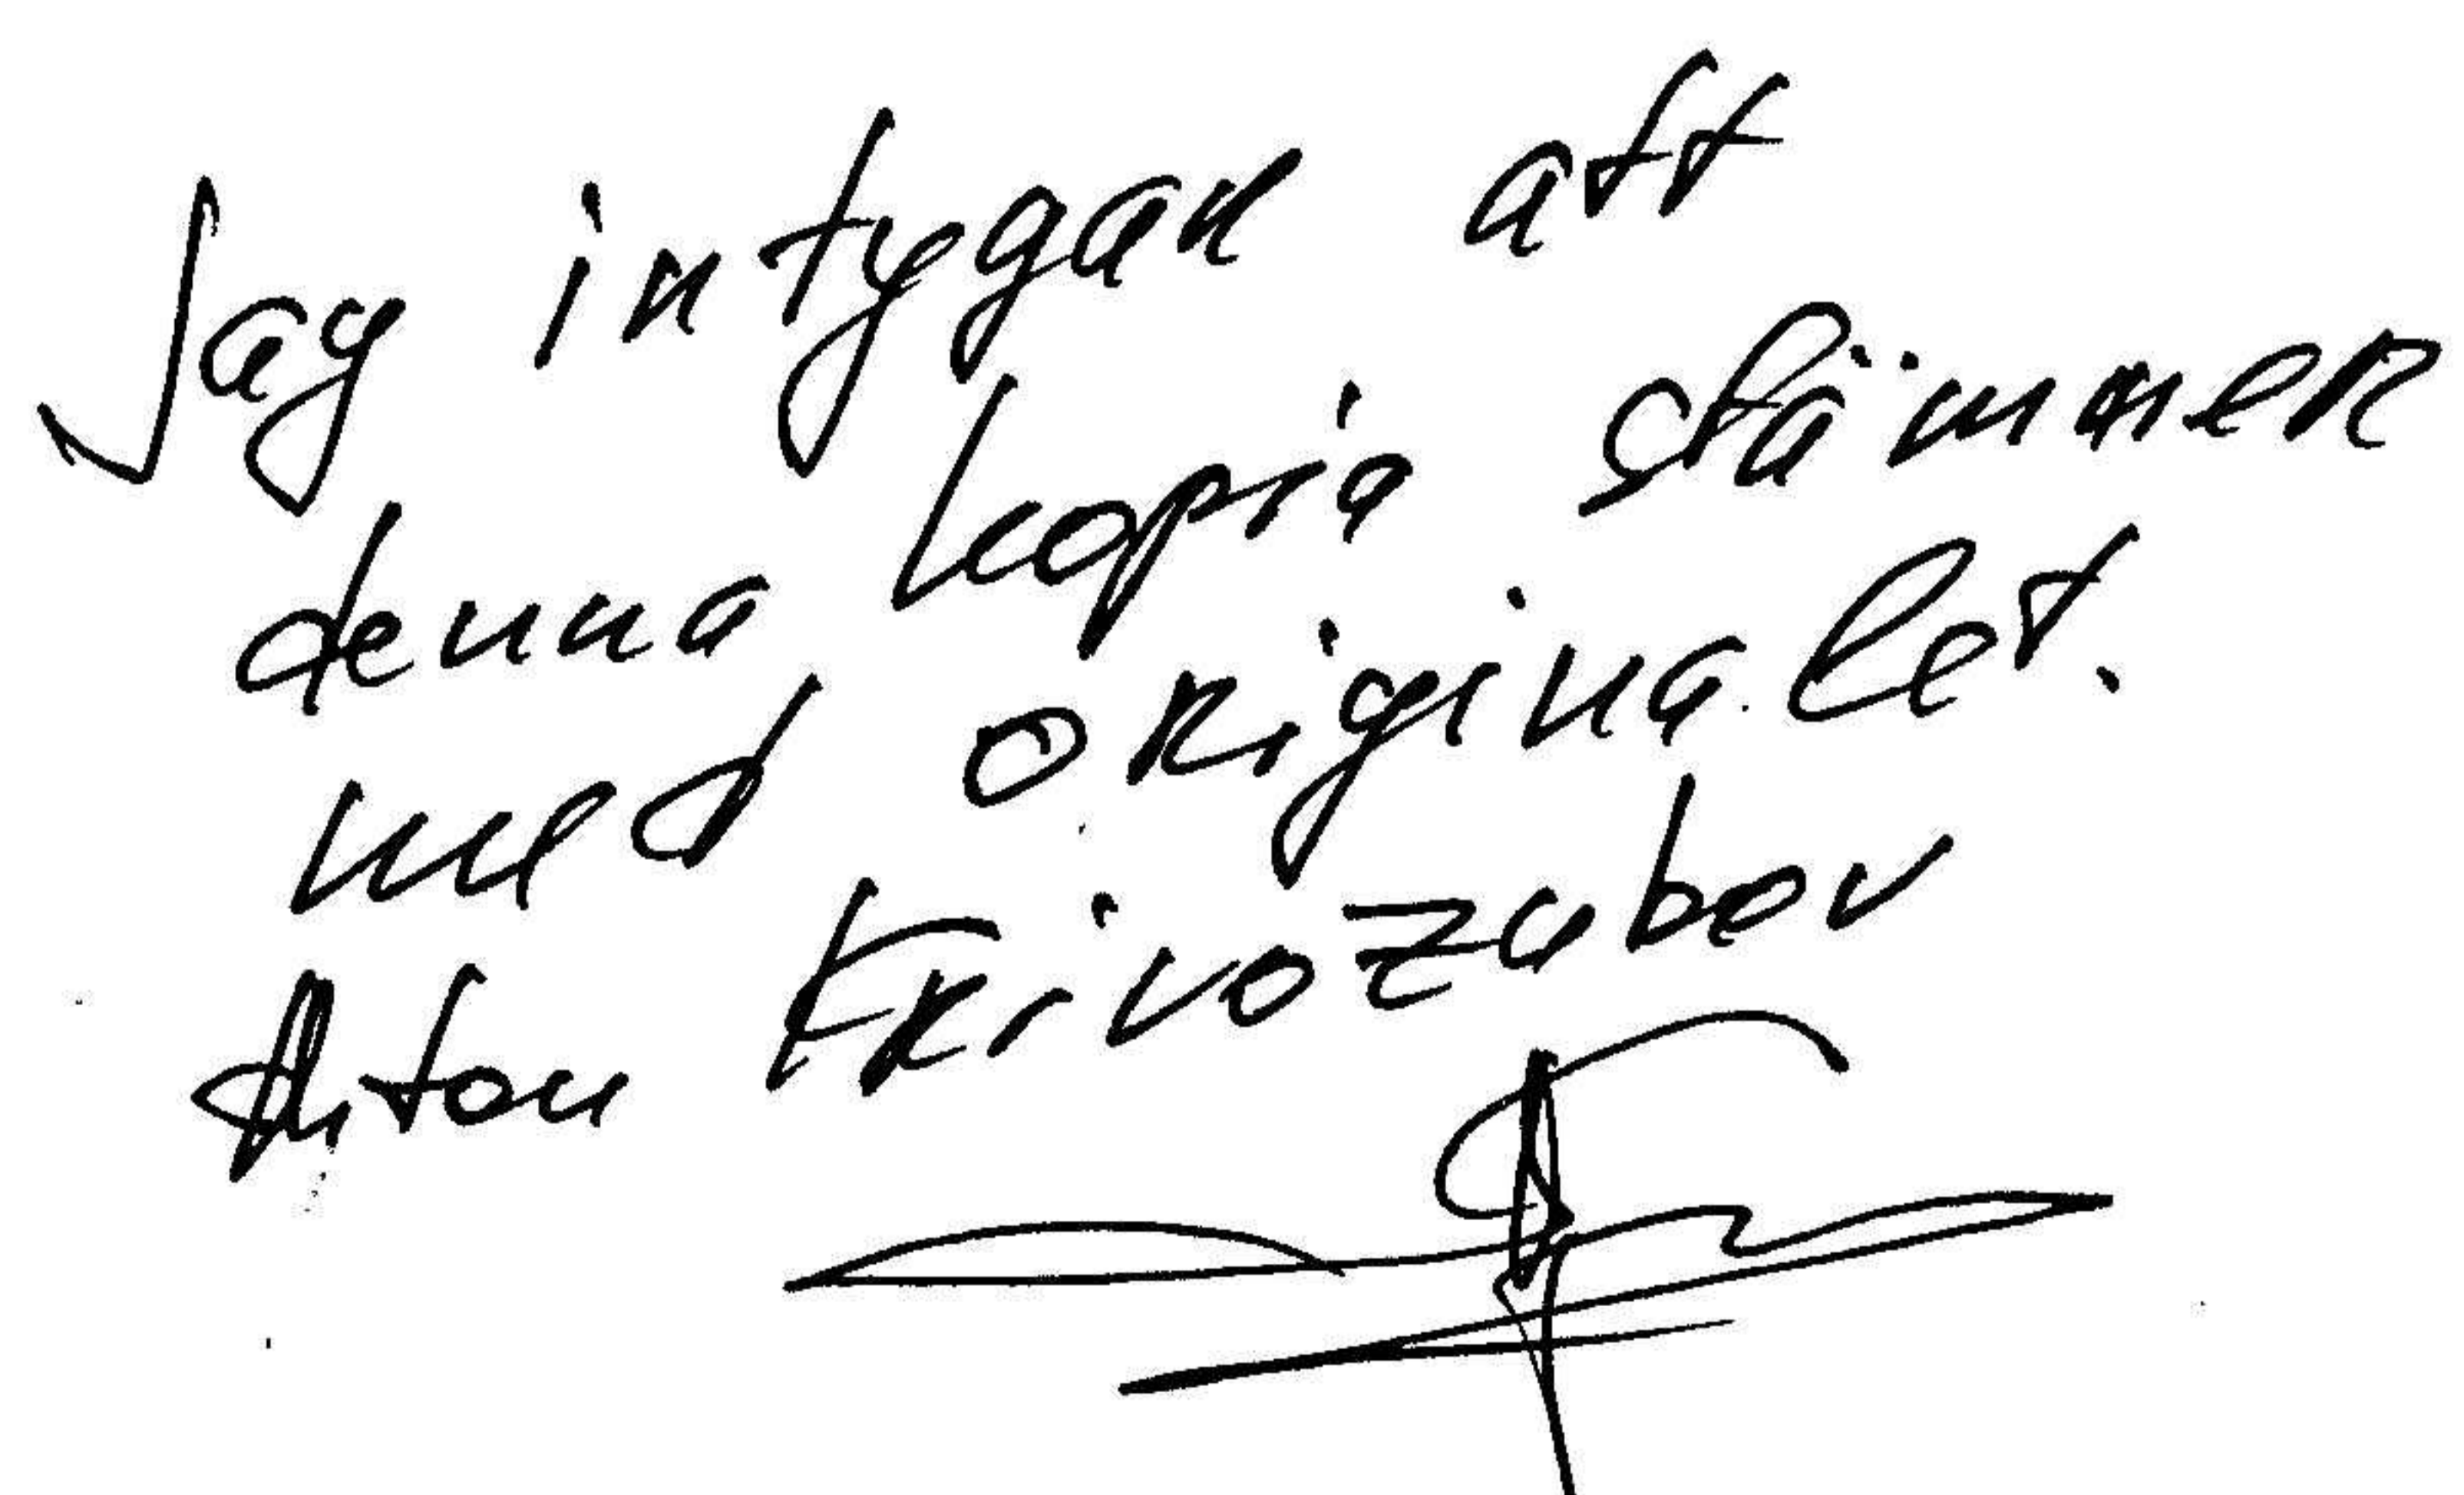 Jag intygar att
denna kopia stämmer
med originalet.
Anton Krivozubov